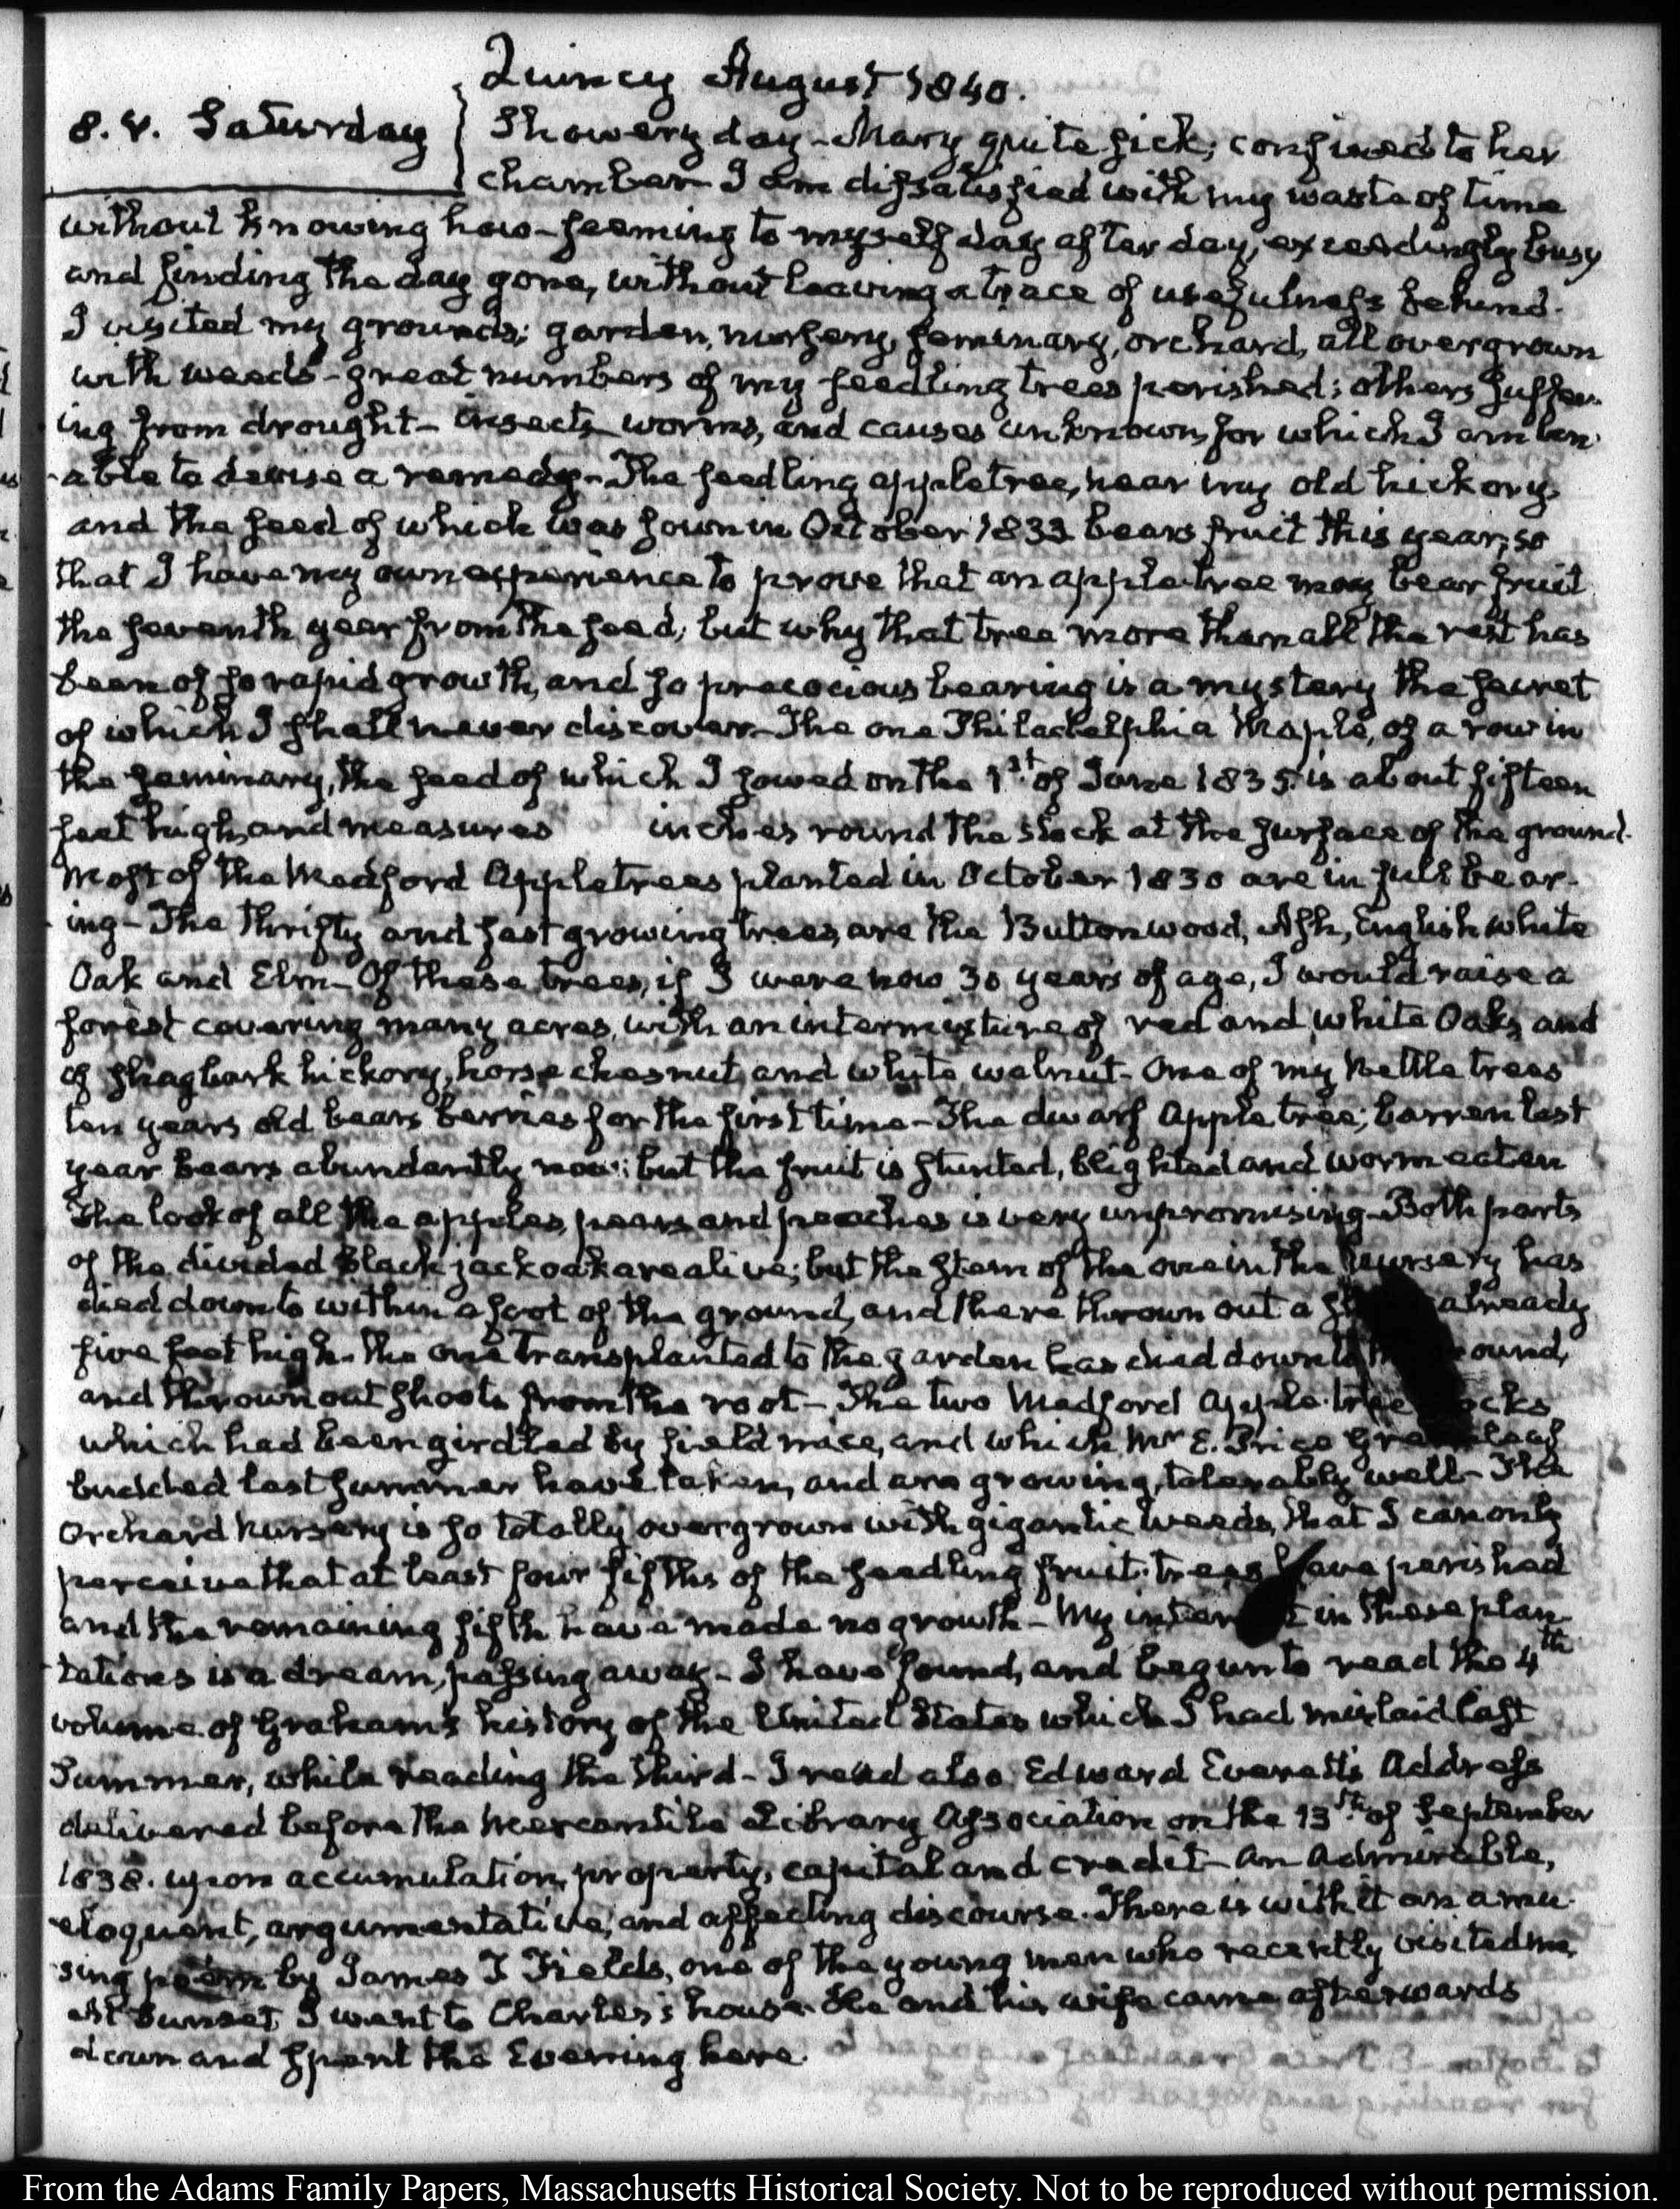 Quincy August 1840.
8. V. Saturday
Showery day – Mary quite sick; confined to her
chamber – I am dissatisfied with my waste of time
without knowing how – seeming to myself day after day, exceedingly busy
and finding the day gone, without leaving a trace of usefulness behind.
I visited my grounds; garden, nursery, seminary, orchard, all overgrown
with weeds – great numbers of my seedling trees perished; others suffer-
ing from drought – insects worms, and causes unknown, for which I am un-
able to devise a remedy – The seedling appletree, near my old hickory
and the seed of which was sown in October 1833 bears fruit this year, so
that I have my own experience to prove that an apple-tree may bear fruit
the seventh year from the seed; but why that tree more than all the rest has
been of so rapid growth, and so precocious bearing is a mystery the secret
of which I shall never discover – The one Philadelphia Maple, of a row in
the seminary, the seed of which I sowed on the 1st of June 1835 is about fifteen
feet high, and measures inches round the stock at the surface of the ground.
Most of the Medford Appletrees planted in October 1830 are in full bear-
ing – The thrifty and fast growing trees, are the Buttonwood, Ash, English white
Oak and Elm – Of these trees, if I were now 30 years of age, I would raise a
forest covering many acres, with an intermixture of red and white Oaks, and
of shagbark hickory, horse chesnut, and white walnut – One of my Nettle trees
ten years old bears berries for the first time – The dwarf Apple tree; barren last
year bears abundantly now; but the fruit is stunted, blighted and worm eaten
The look of all the apples, pears and peaches is very unpromising – Both parts
of the divided Black jack oak are alive; but the stem of the one in the nursery has
died down to within a foot of the ground, and there thrown out a already
five feet high – the one transplanted to the garden has died down to the ground,
and thrown out shoots from the root – The two Medford Apple-tree stocks
which had been girdled by field mice, and which Mr E. Price Greenleaf
budded last summer have taken, and are growing tolerably well – The
Orchard nursery is so totally overgrown with gigantic weeds, that I can only
perceive that at least four fifths of the seedling fruit-trees have perished
and the remaining fifth have made no growth – My interest in these plan-
tations is a dream, passing away – I have found, and begun to read the 4th
volume of Graham's history of the United States which I had mislaid last
Summer, while reading the third – I read also Edward Everett's Address
delivered before the Mercantile Library Association on the 13th of September
1838. upon accumulation, property, capital and credit – An admirable,
eloquent, argumentative, and affecting discourse. There is with it an amu-
sing poem by James T Fields, one of the young men who recently visited me.
At Sunset, I went to Charles's house. He and his wife came afterwards
down and spent the Evening here.
From the Adams Family Papers, Massachusetts Historical Society. Not to be reproduced without permission.